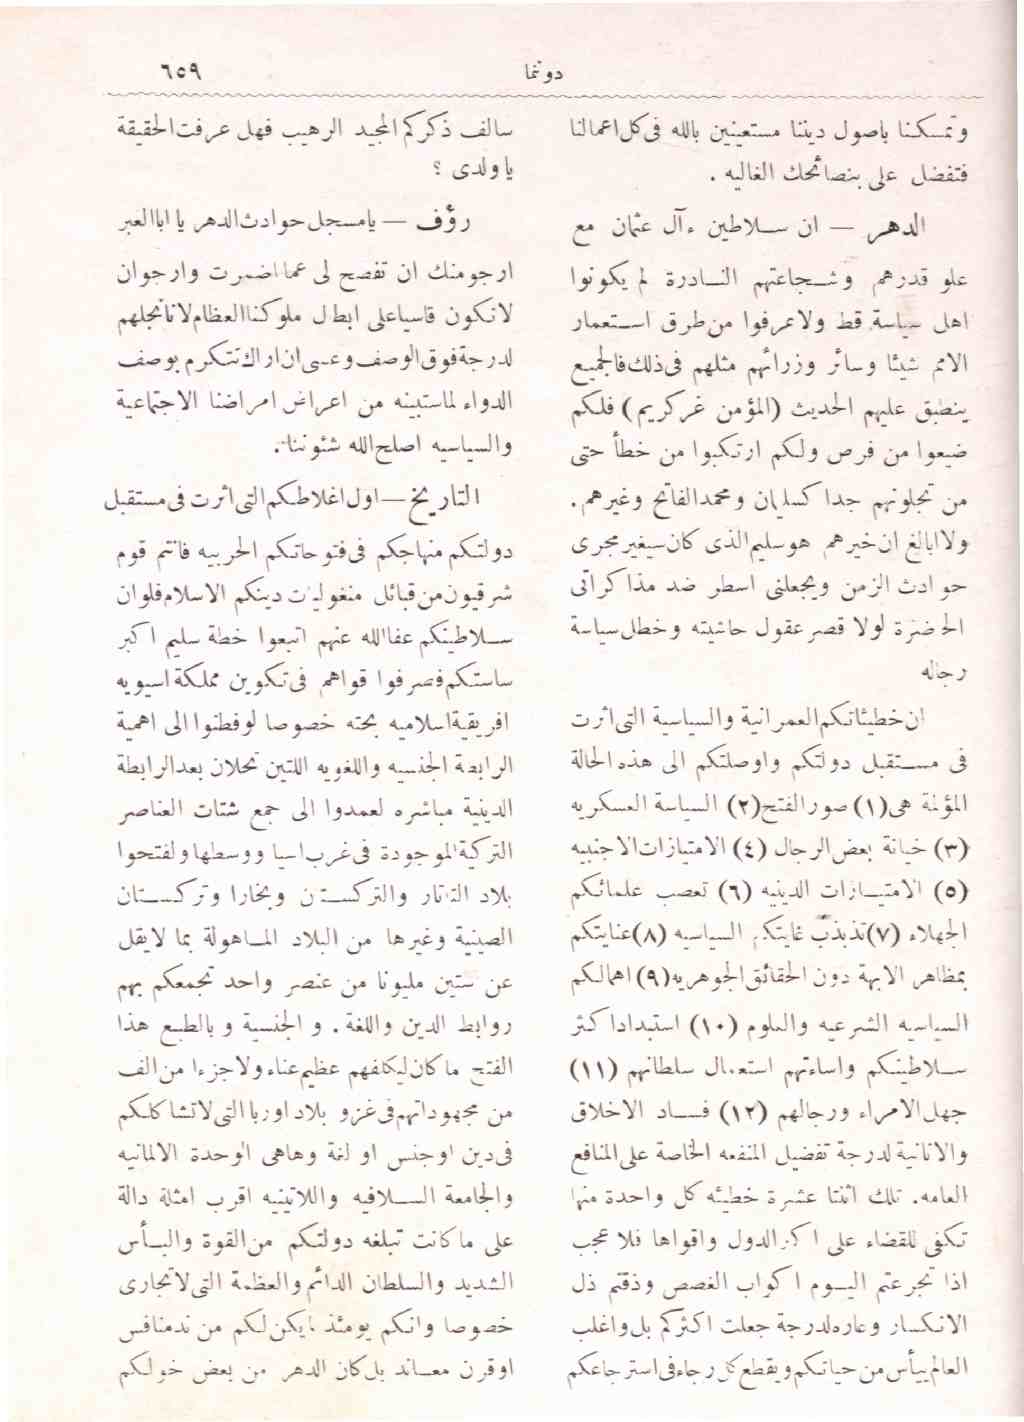 دونما
٦٥٩
وتمسكنا باصول ديننا مستعينين بالله فى كل اعمالنا
فتفضل على بنصائحك الغاليه .
الدهر — ان سلاطين ءآل عثمان مع
علو قدرهم وشجاعتهم النادرة لم يكونوا
اهل سياسة قط ولا عرفوا من طرق استعمار
الامم شيئا وسائر وزرائهم مثلهم فى ذلك فالجميع
ينطبق عليهم الحديث (المؤمن غر كريم) فلكم
ضيعوا من فرص ولكم ارتكبوا من خطأ حتى
من تجلونهم جدا كسليمان ومحمد الفاتح وغيرهم .
ولا ابالغ ان خيرهم هو سليم الذى كان سيغير مجرى
حوادث الزمن ويجعلنى اسطر ضد مذاكراتى
الحاضرة لولا قصر عقول حاشيته وخطل سياسة
رجاله
ان خطيئاتكم العمرانية والسياسية التى اثرت
فى مستقبل دولتكم واوصلتكم الى هذه الحالة
المؤلمة هى (١) صور الفتح (٢) السياسة العسكريه
(٣) خيانة بعض الرجال (٤) الامتيازات الاجنبيه
(٥) الامتيازات الدينيه (٦) تعصب علمائكم
الجهلاء (٧) تذبذب غايتكم السياسيه (٨) عنايتكم
بمظاهر الابهة دون الحقائق الجوهريه (٩) اهمالكم
السياسيه الشرعيه والعلوم (١٠) استبداد اكثر
سلاطينكم واساءتهم استعمال سلطانهم (١١)
جهل الامراء ورجالهم (١٢) فساد الاخلاق
والانانية لدرجة تفضيل المنفعه الخاصة على المنافع
العامه. تلك اثنتا عشرة خطيئه كل واحدة منها
تكفى للقضاء على اكبر الدول واقواها فلا عجب
اذا تجرعتم اليوم اكواب الغصص وذقتم ذل
الانكسار وعاره لدرجة جعلت اكثركم بل واغلب
العالم ييأس من حياتكم ويقطع كل رجاء فى استرجاعكم
سالف ذكركم المجيد الرهيب فهل عرفت الحقيقة
يا ولدى ؟
رؤف — يا مسجل حوادث الدهر يا ابا العبر
ارجو منك ان تفصح لى عما اضمرت وارجو ان
لا تكون قاسيا على ابطال ملوكنا العظام لاننا نجلهم
لدرجة فوق الوصف وعسى ان اراك تتكرم بوصف
الدواء لما ستبينه من اعراض امراضنا الاجتماعية
والسياسيه اصلح الله شئوننا .
التاريخ — اول اغلاطكم التى اثرت فى مستقبل
دولتكم منهاجكم فى فتوحاتكم الحربيه فانتم قوم
شرقيون من قبائل منغوليات دينكم الاسلام فلو ان
سلاطينكم عفا الله عنهم اتبعوا خطة سليم اكبر
ساستكم فصرفوا قواهم فى تكوين مملكة اسيويه
افريقية اسلاميه بحته خصوصا لو فطنوا الى اهمية
الرابطة الجنسيه واللغويه اللتين تحلان بعد الرابطة
الدينية مباشره لعمدوا الى جمع شتات العناصر
التركية الموجودة فى غرب اسيا ووسطها ولفتحوا
بلاد التاتار والتركستان وبخارا وتركستان
الصينية وغيرها من البلاد المأهولة بما لا يقل
عن ستين مليونا من عنصر واحد تجمعكم بهم
روابط الدين واللغة . و الجنسية و بالطبع هذا
الفتح ما كان ليكلفهم عظيم عناء ولا جزءا من الف
من مجهوداتهم فى غزو بلاد اوربا التى لا تشاكلكم
فى دين او جنس او لغة وهاهى الوحدة الالمانيه
والجامعة السلافيه واللاتينيه اقرب امثلة دالة
على ما كانت تبلغه دولتكم من القوة والبأس
الشديد والسلطان الدائم والعظمة التى لا تجارى
خصوصا وانكم يومئذ لم يكن لكم من ند منافس
او قرن معاند بل كان الدهر من بعض خولكم